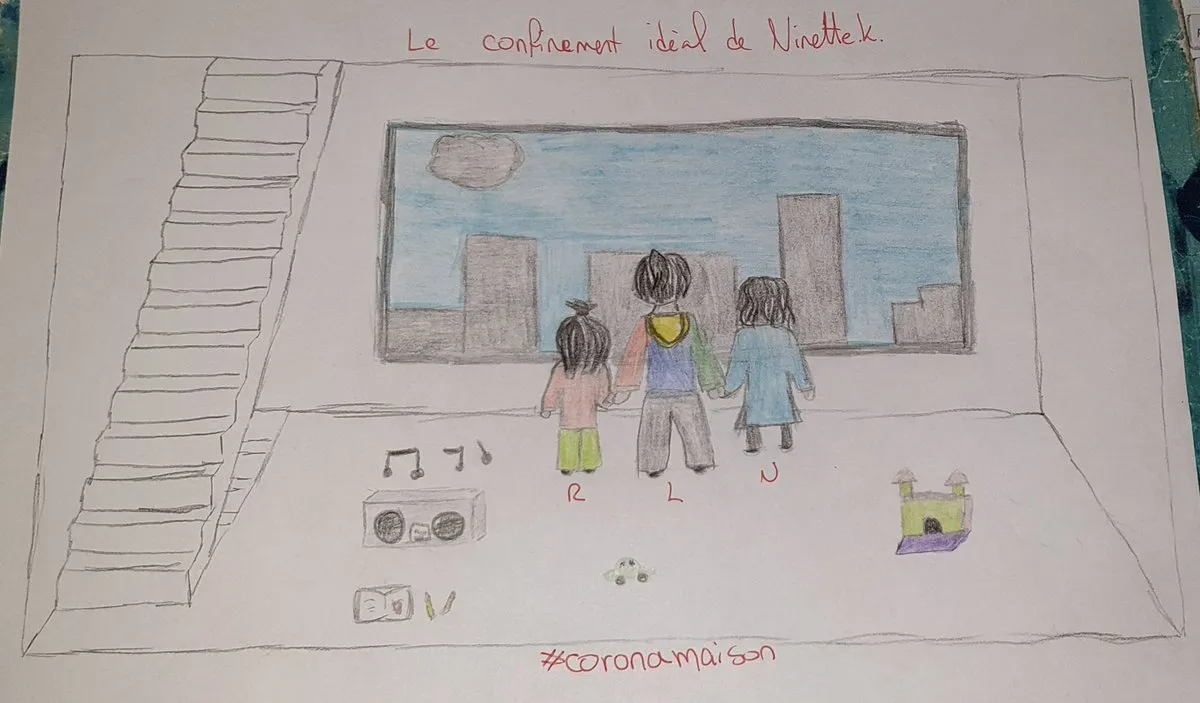 Le confinement idéal de Ninette.k.
R L N
#coronamaison